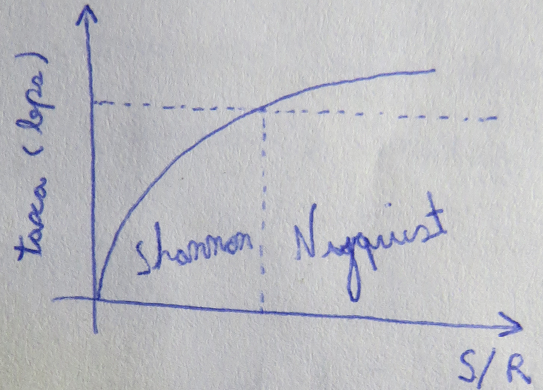 taxa (bps)
Shannon Nyquist
S/R